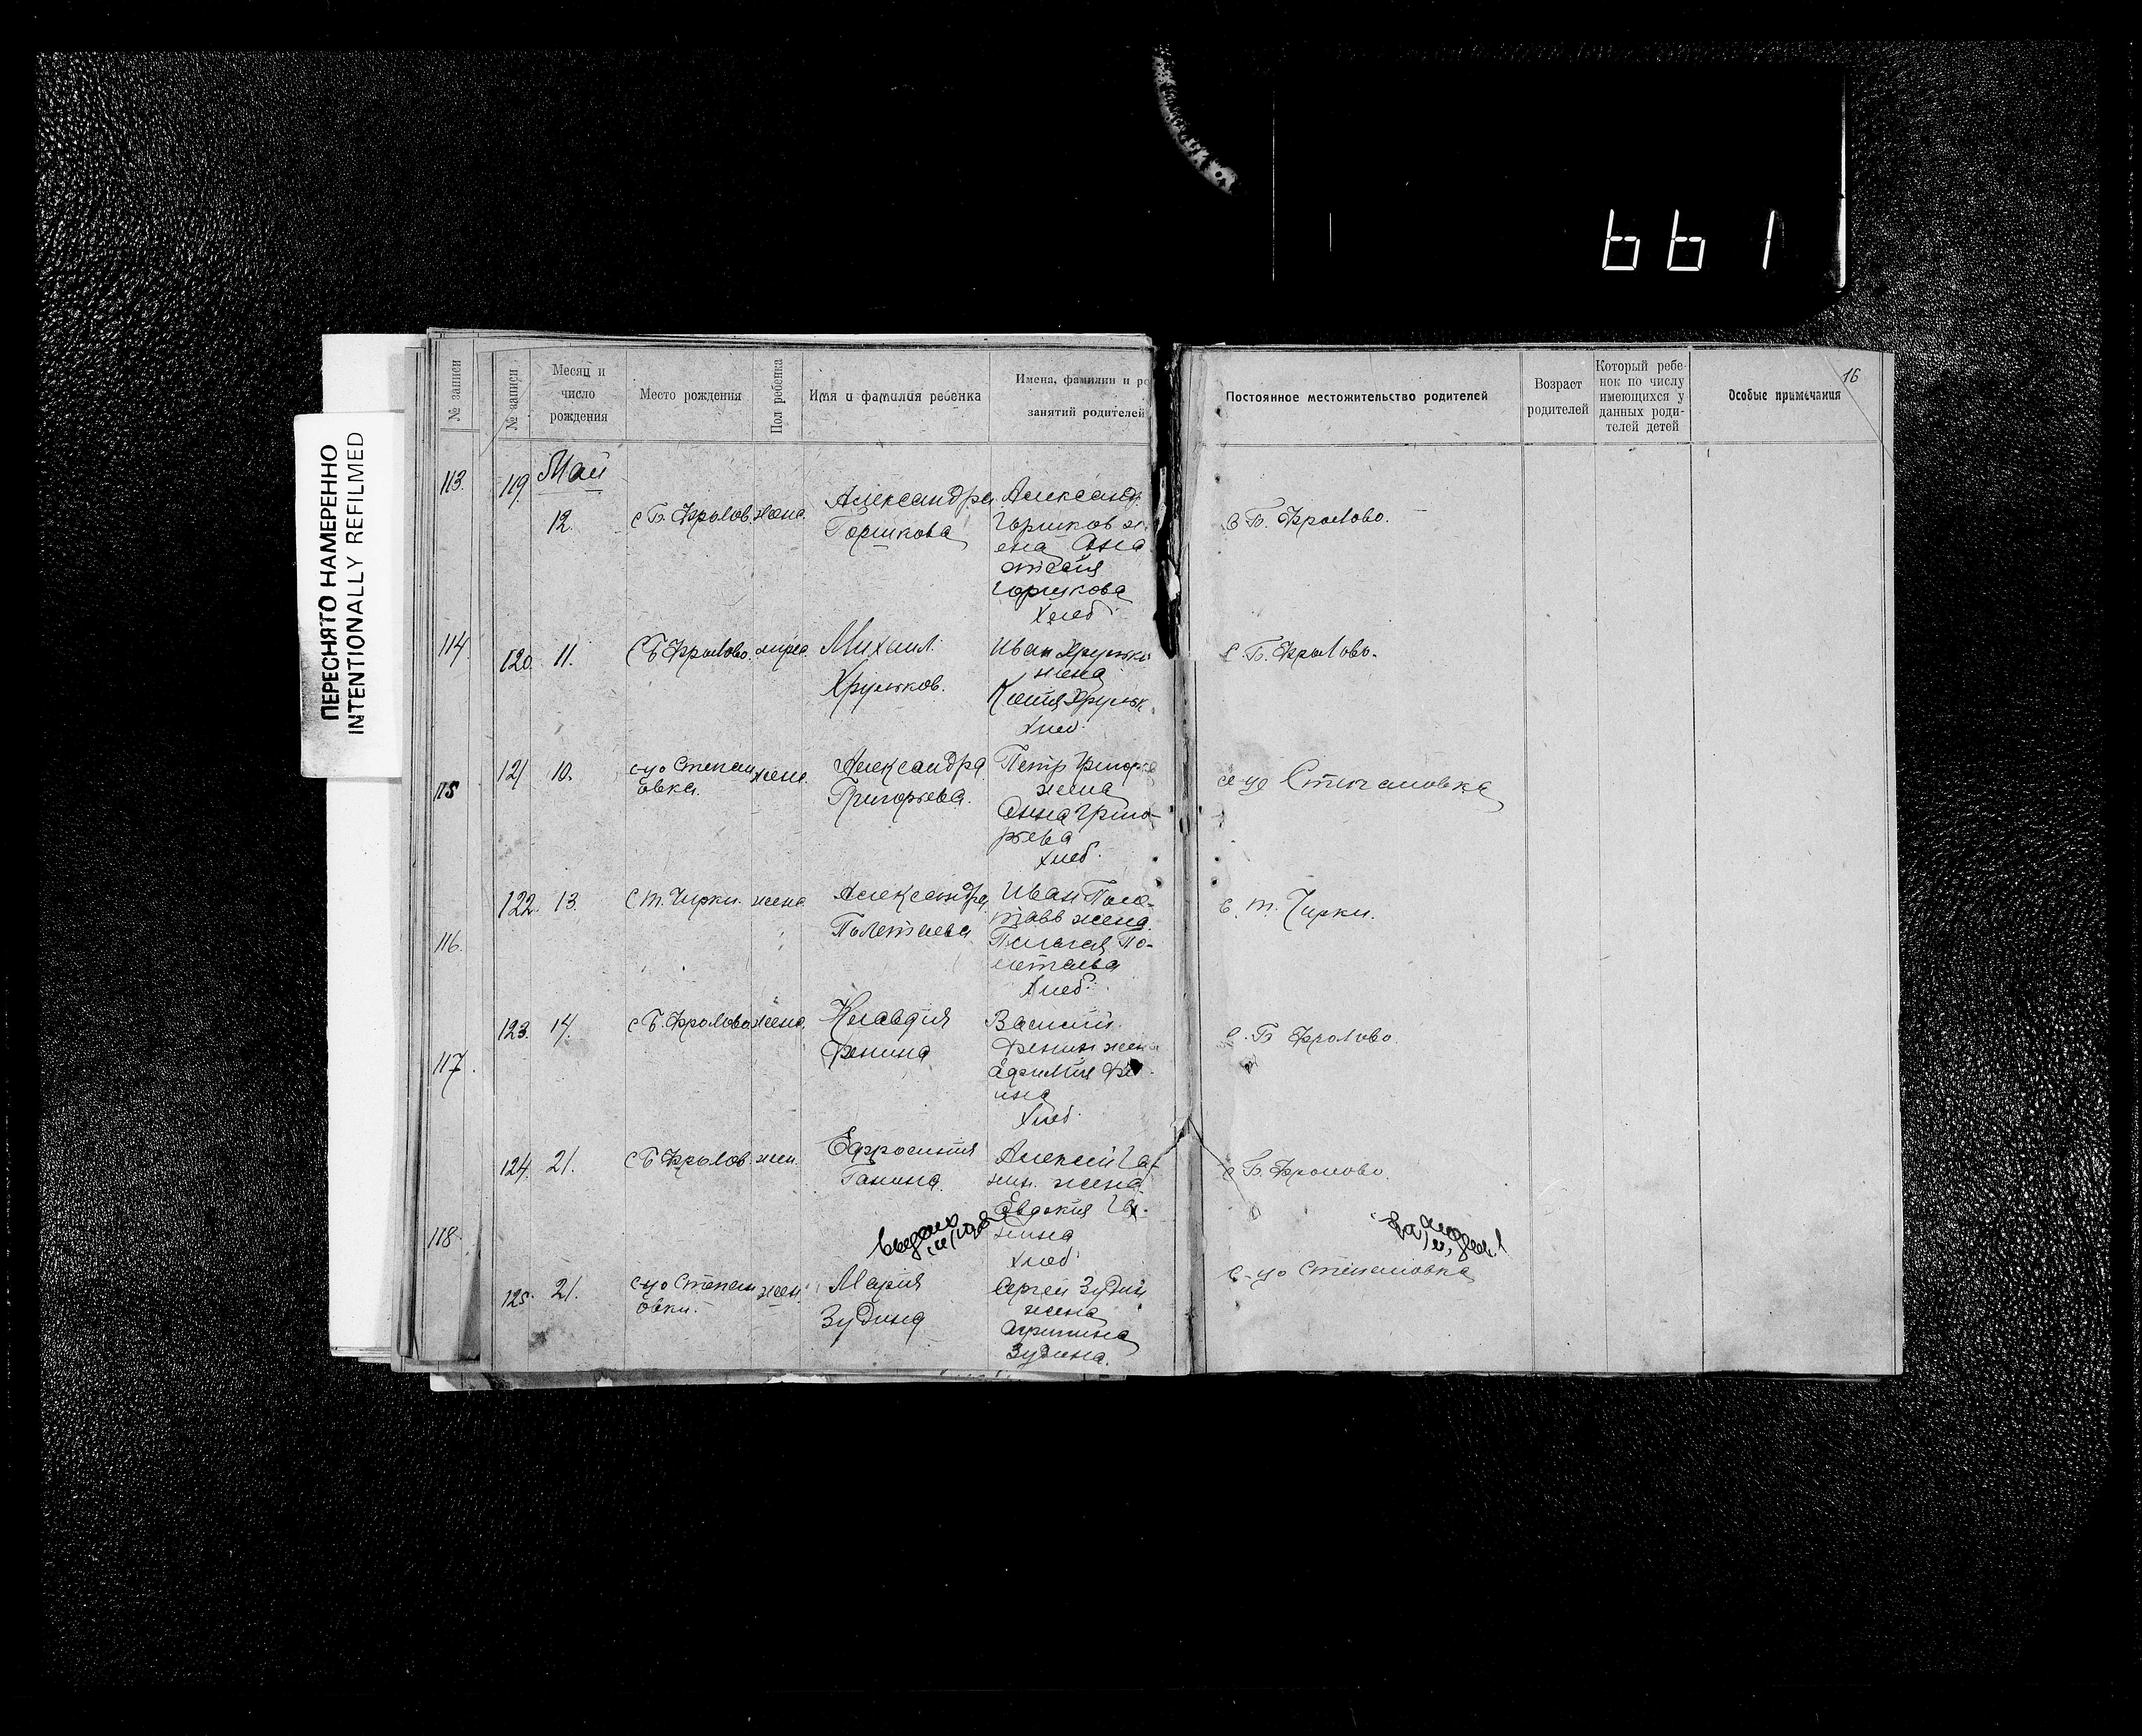 661
ПЕРЕСНЯТО НАМЕРЕННО
INTENTIONALLY REFILMED
№ записи
№ записи
Месяц и
число
рождения
Место рождения
Пол ребенка
Имя и фамилия ребенка
Имена, фамилии и ро
занятий родителей
Постоянное местожительство родителей
Возраст
родителей
Который ребе-
нок по числу
имеющихся у
данных роди-
телей детей
Особые примечания
16
Май
113. 119 12. с Б. Фролов. жена.
Александра
Горшкова
Александ.
Горшков ж
ена Ана
стасия
Горшкова
Хлеб.
с Б. Фролово.
114. 120. 11. С Б Фролово.
Михаил.
Хрульков.
Иван
жена
Хлеб.
с. Б. Фролово.
115 121 10. с-цо Степан
овка. жен.
Александра
Григорьева.
Петр Григорь
жена
Анна Григо-
рьева
Хлеб.
с-цо Степановка
116. 122. 13. С т. Чирки. жена
Александра
Полетаева
Иван Поле-
жена.
Пелагея По-
летаева
Хлеб.
с. т. Чирки.
117. 123. 14. с Б. Фролово жена.
Клавдия
Фенина
Василий
Фенин жена
Фе
ина
Хлеб.
с. Б Фролово.
118. 124. 21. с Б Фролов. жен.
Ефросиния
Ганина.
Алексей Га-
нин. жена
Евдокия Га-
нина
Хлеб
с Б. Фролово.
125. 21. с-цо Степан
овки. жен.
Мария
Зудина
Сергей Зудин
жена
Агрипина
Зудина.
с-цо Степановка